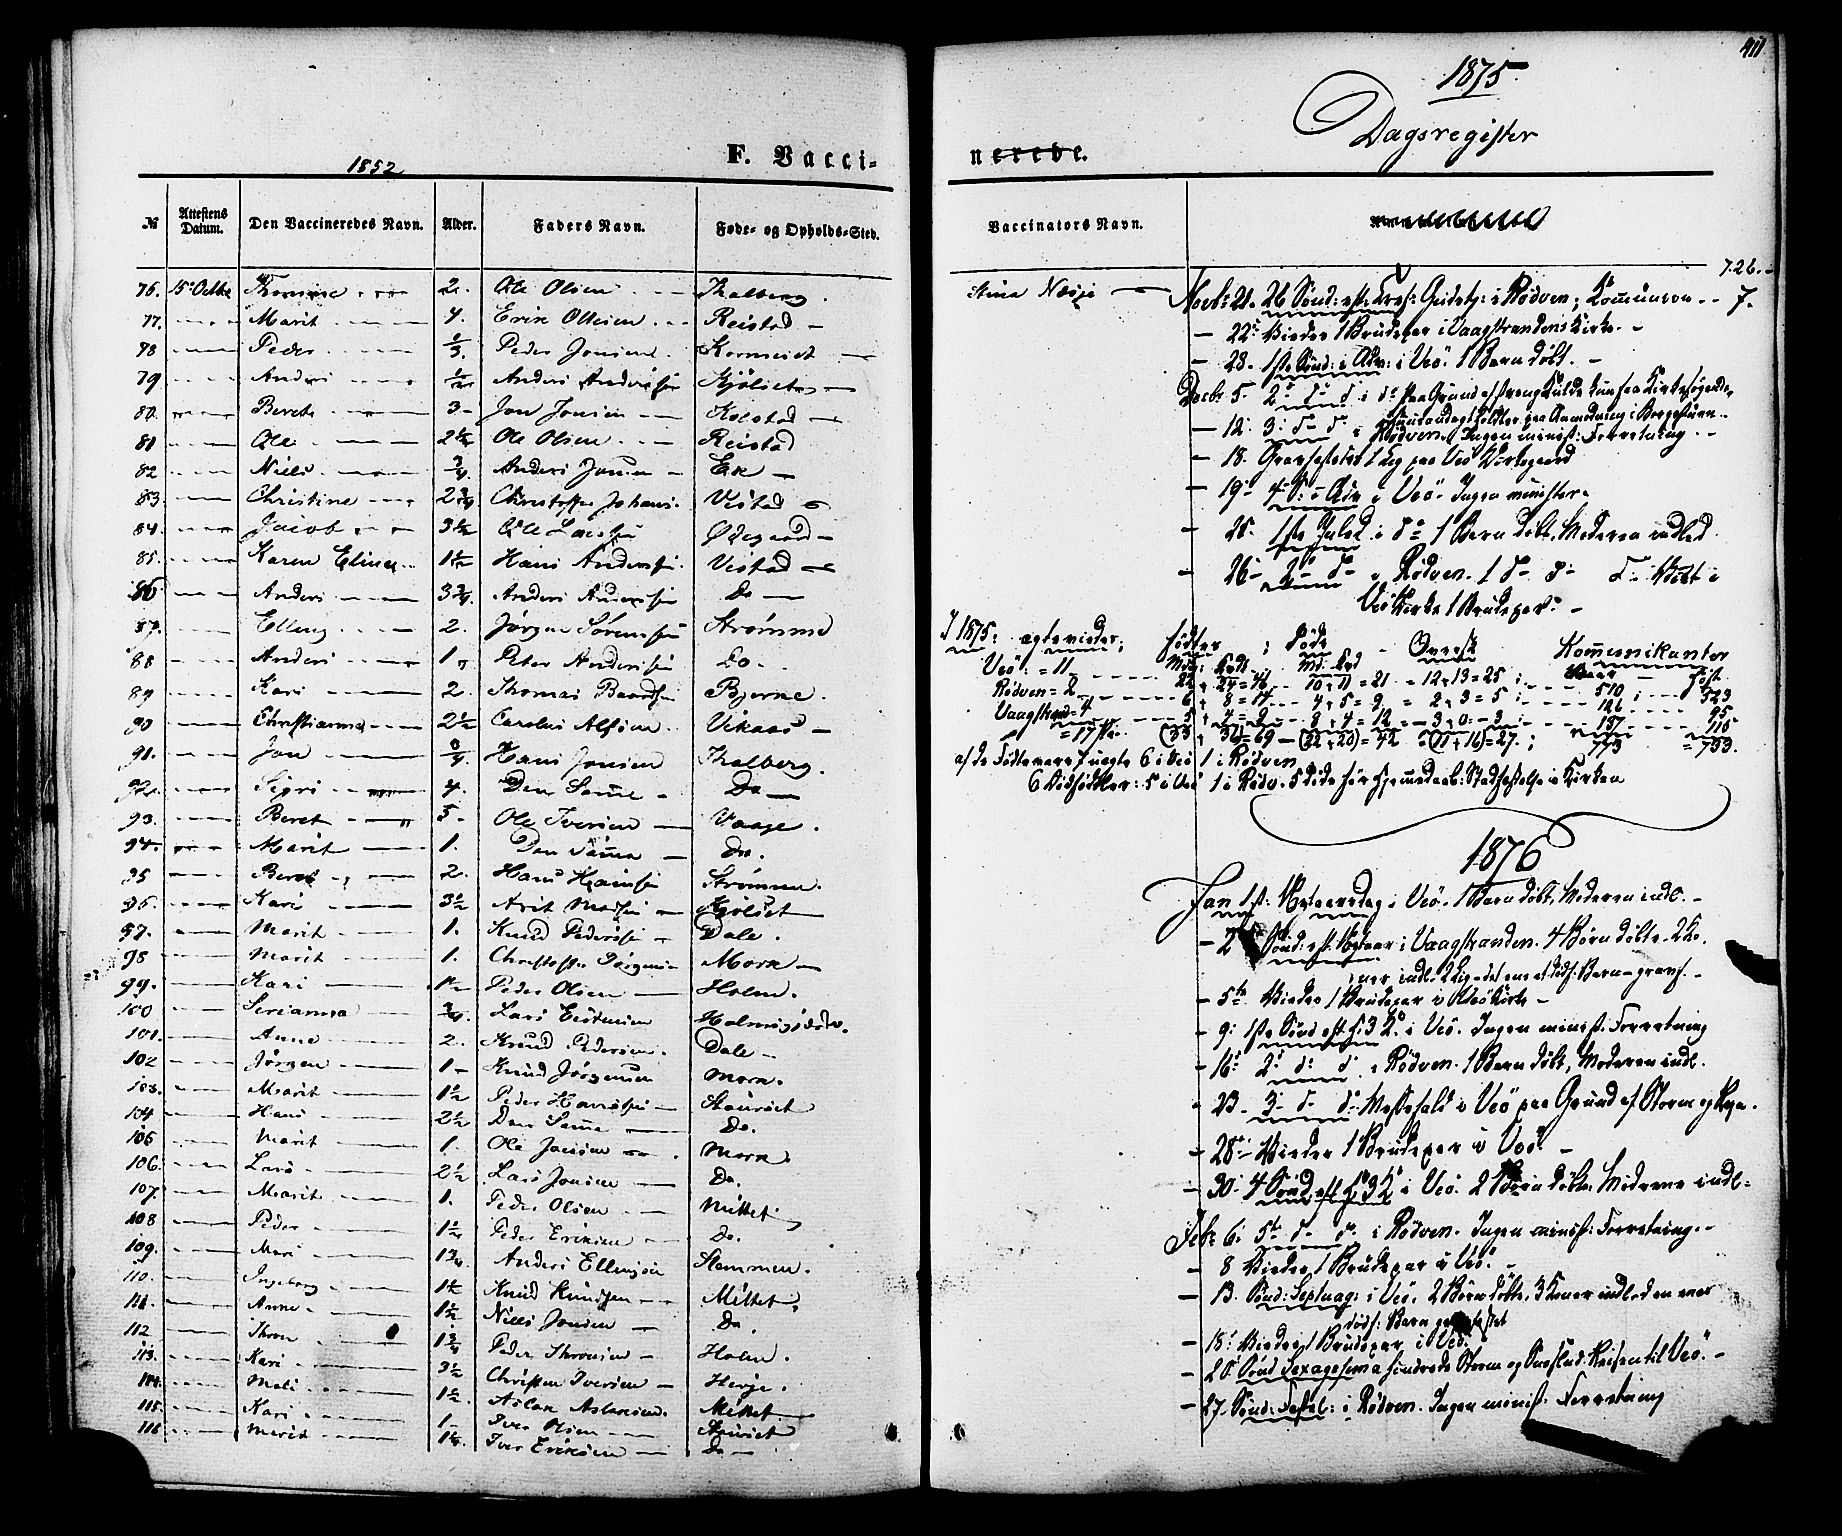 411
1875.
Dagsregister
1852
F. Vacci-
nerede.
№ Attestens Datum. Den Vaccineredes Navn. Alder. Faders Navn. Føde- og Opholds-Sted.
Vaccinators Navn.
76. 15 Octbr Thomine 2. Ole Olsen Thalberg.
77. Marit 4. Erik Olsen Reistad
78 Peder Peder Jonsen
79 Anders Anders Andersen Kjölset
80. Berete 3 Jon Jonsen Kolstad
81 Ole 2½ Ole Olsen Reistad
82 Niels ¾ Anders Jonsen Eik
83. Christine 2¾ Christoffer Johans. Vestad
84. Jacob 3½ Ole Larsen Ødegaard
85. Karen Eline 1½ Hans Andersen Vestad
86 Anders 3¾ Anders Andersen Do
87. Elling 2. Jørgen Sørensen Strømme
88 Anders 1 Peter Andersen Do
89 Kari 2. Thomas Baardsen Bjerme.
90 Christianna 2½ Carolus Alfsen Vikaas
91. Jon ¾ Hans Jonsen Thalberg.
92. Sigri 4. Den Samme Do
93. Beret 5 Ole Iversen Vaage.
94. Marit 1. Den Samme Do.
95 Beret 2. Hans Hansen Strømme.
96. Kari 3½ Arit Madsen Kjölset
97. Marit 1. Knud Pedersen Dale.
98 Marit 1. Christoffer Jørgensen Mork
99. Kari Peder Olsen Holm.
100 Serianna ¾ Lars Eriksen
101. Anne 2. Knud Pedersen. Dale
102 Jørgen 1 Knud Jørgensen Mork.
103. Marit 1½ Peder Hansen Staurset
104 Hans 2½ Den Samme Do.
105 Marit 1. Ole Jonsen Mork
106. Lars 2½ Lars Jonsen Do.
107. Marit 1. Peder Olsen Mittet
108 Peder 1½ Peder Eriksen Do.
109. Mari 1¾ Anders Ellingsen Stemmen.
110. Ingeborg 1½ Knud Knudsen Mittet,
111. Anne 1½ Niels Jonsen Do.
112 Thron 1¾ Peder Thronsen Holm.
113. Kari 3½ Christen Iversen Herje.
114. Mali 1½ Aslak Aslaksen. Mittet
115. Kari 1 Iver Olsen Staurset
116 Marit Iver Eriksen Do
Stina Næsje
7.26.
Novbr: 21. 26 Sönd: eft: Tref: Gudstj: i Rödven; Kommunion 7.
22 Viedes 1 Brudepar i Vaagstrandens Kirke.
28. 1ste Sönd: i Adv: i Veö. 1 Barn döbt.
Decbr 5. 2 d d i d Paa Grund af streng Kulde kun faa Kirkesøgende,
12. 3. d d i Rödven. Ingen minist: Forretning
18. Gravfæstet 1 Lig paa Veö Kirkegaard
19. 4 S: i Adv i Veö. Ingen minister.
25. 1ste Juled i do 1 Barn döbt, Moderen indled
26 2 d i Rödven. 1 d
Veö Kirke 1 Brudepar.
I 1875: egtevieder; Födter; Döde Overs. Kommunikanter
Veö: = 11 22, 24 = 46 10, 11 = 21 12, 13 = 25 510 523
Rödven = 2 6, 8 = 14 4, 5 = 9 2, 3 = 5 126 95
Vaagstrand = 4 5, 4 = 9 8, 4 = 12 3, 0 = 3 137 115
= 17 Par. (33, 36) = 69 (22, 20) = 42 (11, 16) = 27; 773 = 733.
af de Födte vare 7 uægte 6 i Veö 1 i Rödven
6 Dödfödte: 5 i Veö 1 i Rödv. 5 döde før Hjemmedaab: Stadfæstelse i Kirken
1876
Jan 1ste: Nytaarsdag i Veö. 1 Barn döbt, Moderen indl.
2 Sönd: eft: Nytaar i Vaagstranden. 4 Börn döbte.
5te Viedes 1 Brudepar i Veö Kirke
9. 1ste Sönd eft H. 3 K. i Veö. Ingen minist: Forretning
16. 2 d: d i Rödven. 1 Barn döbt, Moderen indl.
23. 3 d d Messefald i Veö paa Grund af Storm og
28 Viedes 1 Brudepar i Veö.
30. 4 Sönd eft H. 3 K i Veö. 2 Börn döbte. Mödrene indl.
Febr 6. 5te d d i Rödven. Ingen minist: Forretning.
8 Viedes 1 Brudepar i Veö.
13. Sönd: Septuag: i Veö. 2 Börn döbte, 3 Koner indled en med
dödf: Barn
18. Viedes 1 Brudepar i Veö.
20 Sönd Sexagesima hindrede Storm og Snøslud Reisen til Veö.
27 Sönd: Fastel: i Rödven. Ingen minist: Forretning